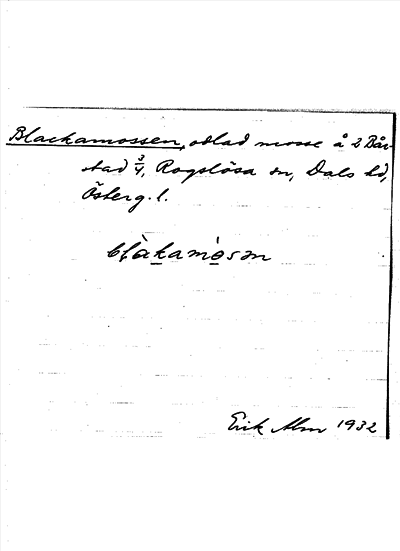 Blackamossen, odlad mosse å 2 Bår-
stad 3/4, Rogslösa sn, Dals hd,
Österg. l.
blàkamòsən
Erik Alm 1932